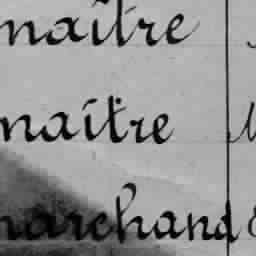 naître
naître
marchand